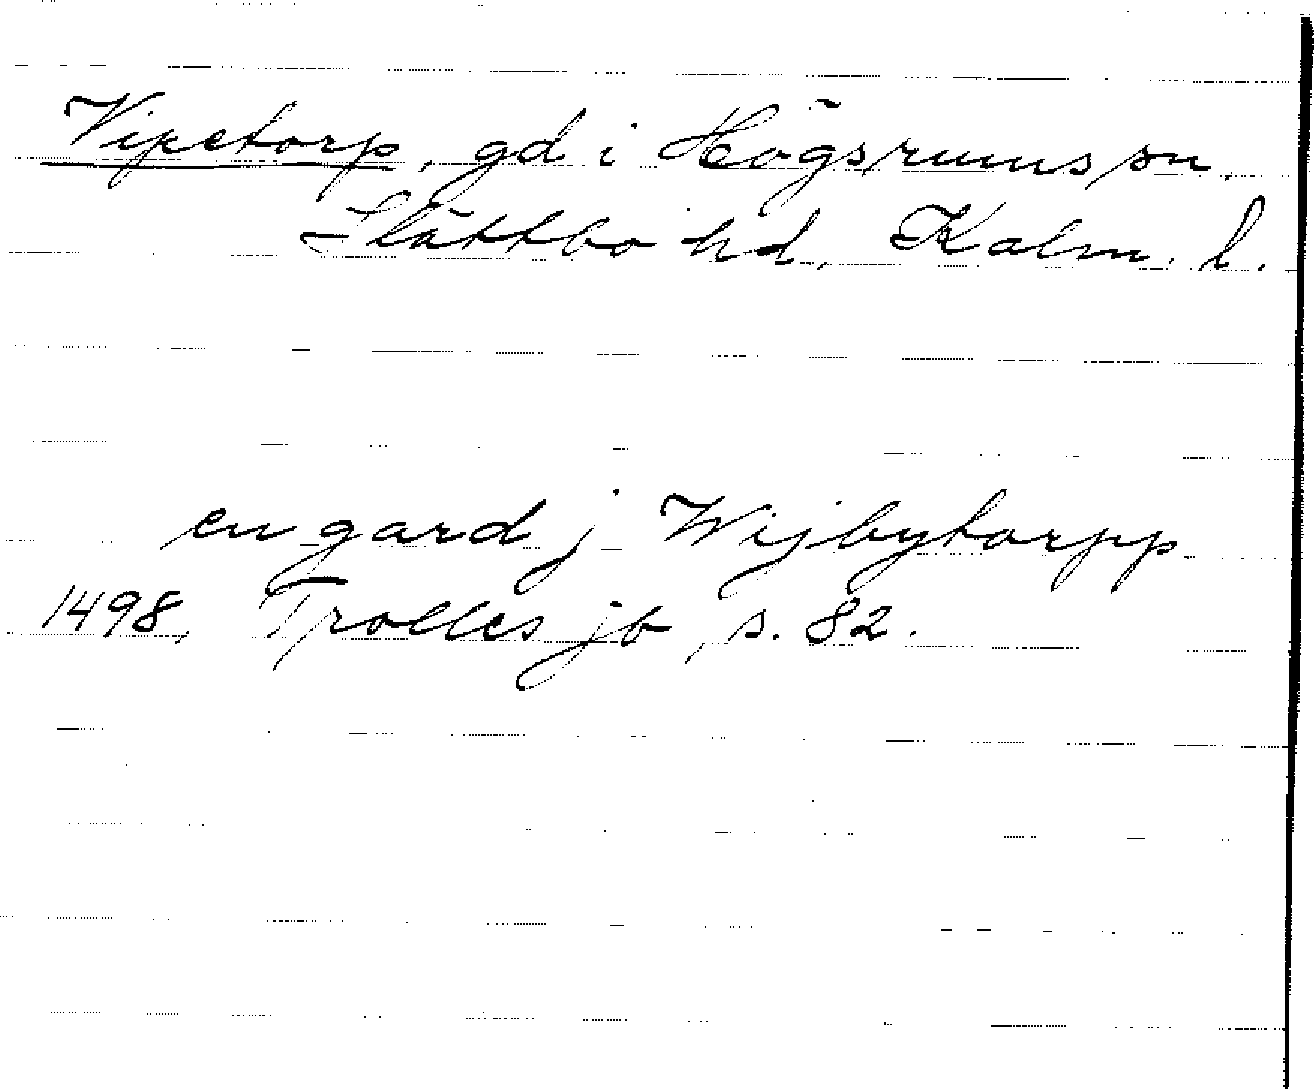 Vipetorp, gd i Högsrums sn,
Slättbo hd, Kalm. l.
en gard j Wijbytorpp
1498, Trolles jb, s. 82.